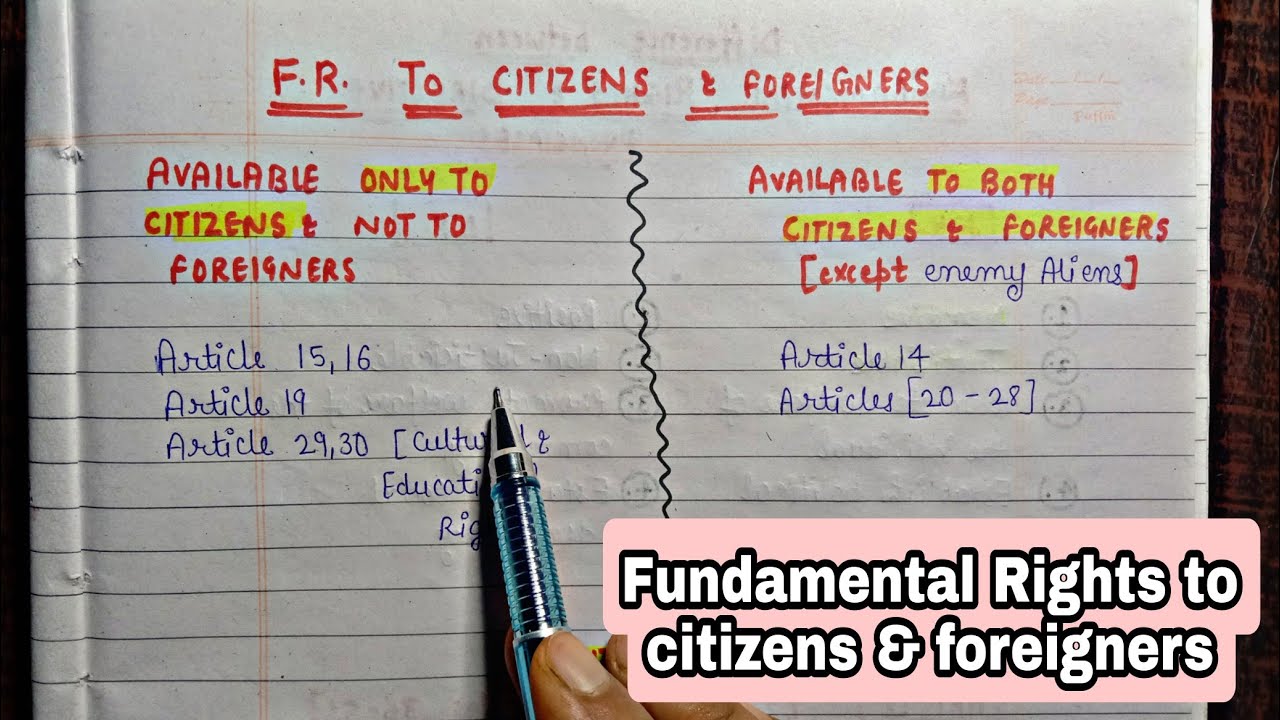 F.R. TO CITIZENS & FOREIGNERS
AVAILABLE ONLY TO
CITIZENS & NOT TO
FOREIGNERS
Article 15,16
Article 19
Article 29,30 [Cultural &
AVAILABLE TO BOTH
CITIZENS & FOREIGNERS
[except enemy Aliens]
Article 14
Articles [20-28]
Fundamental Rights to
citizens & foreigners